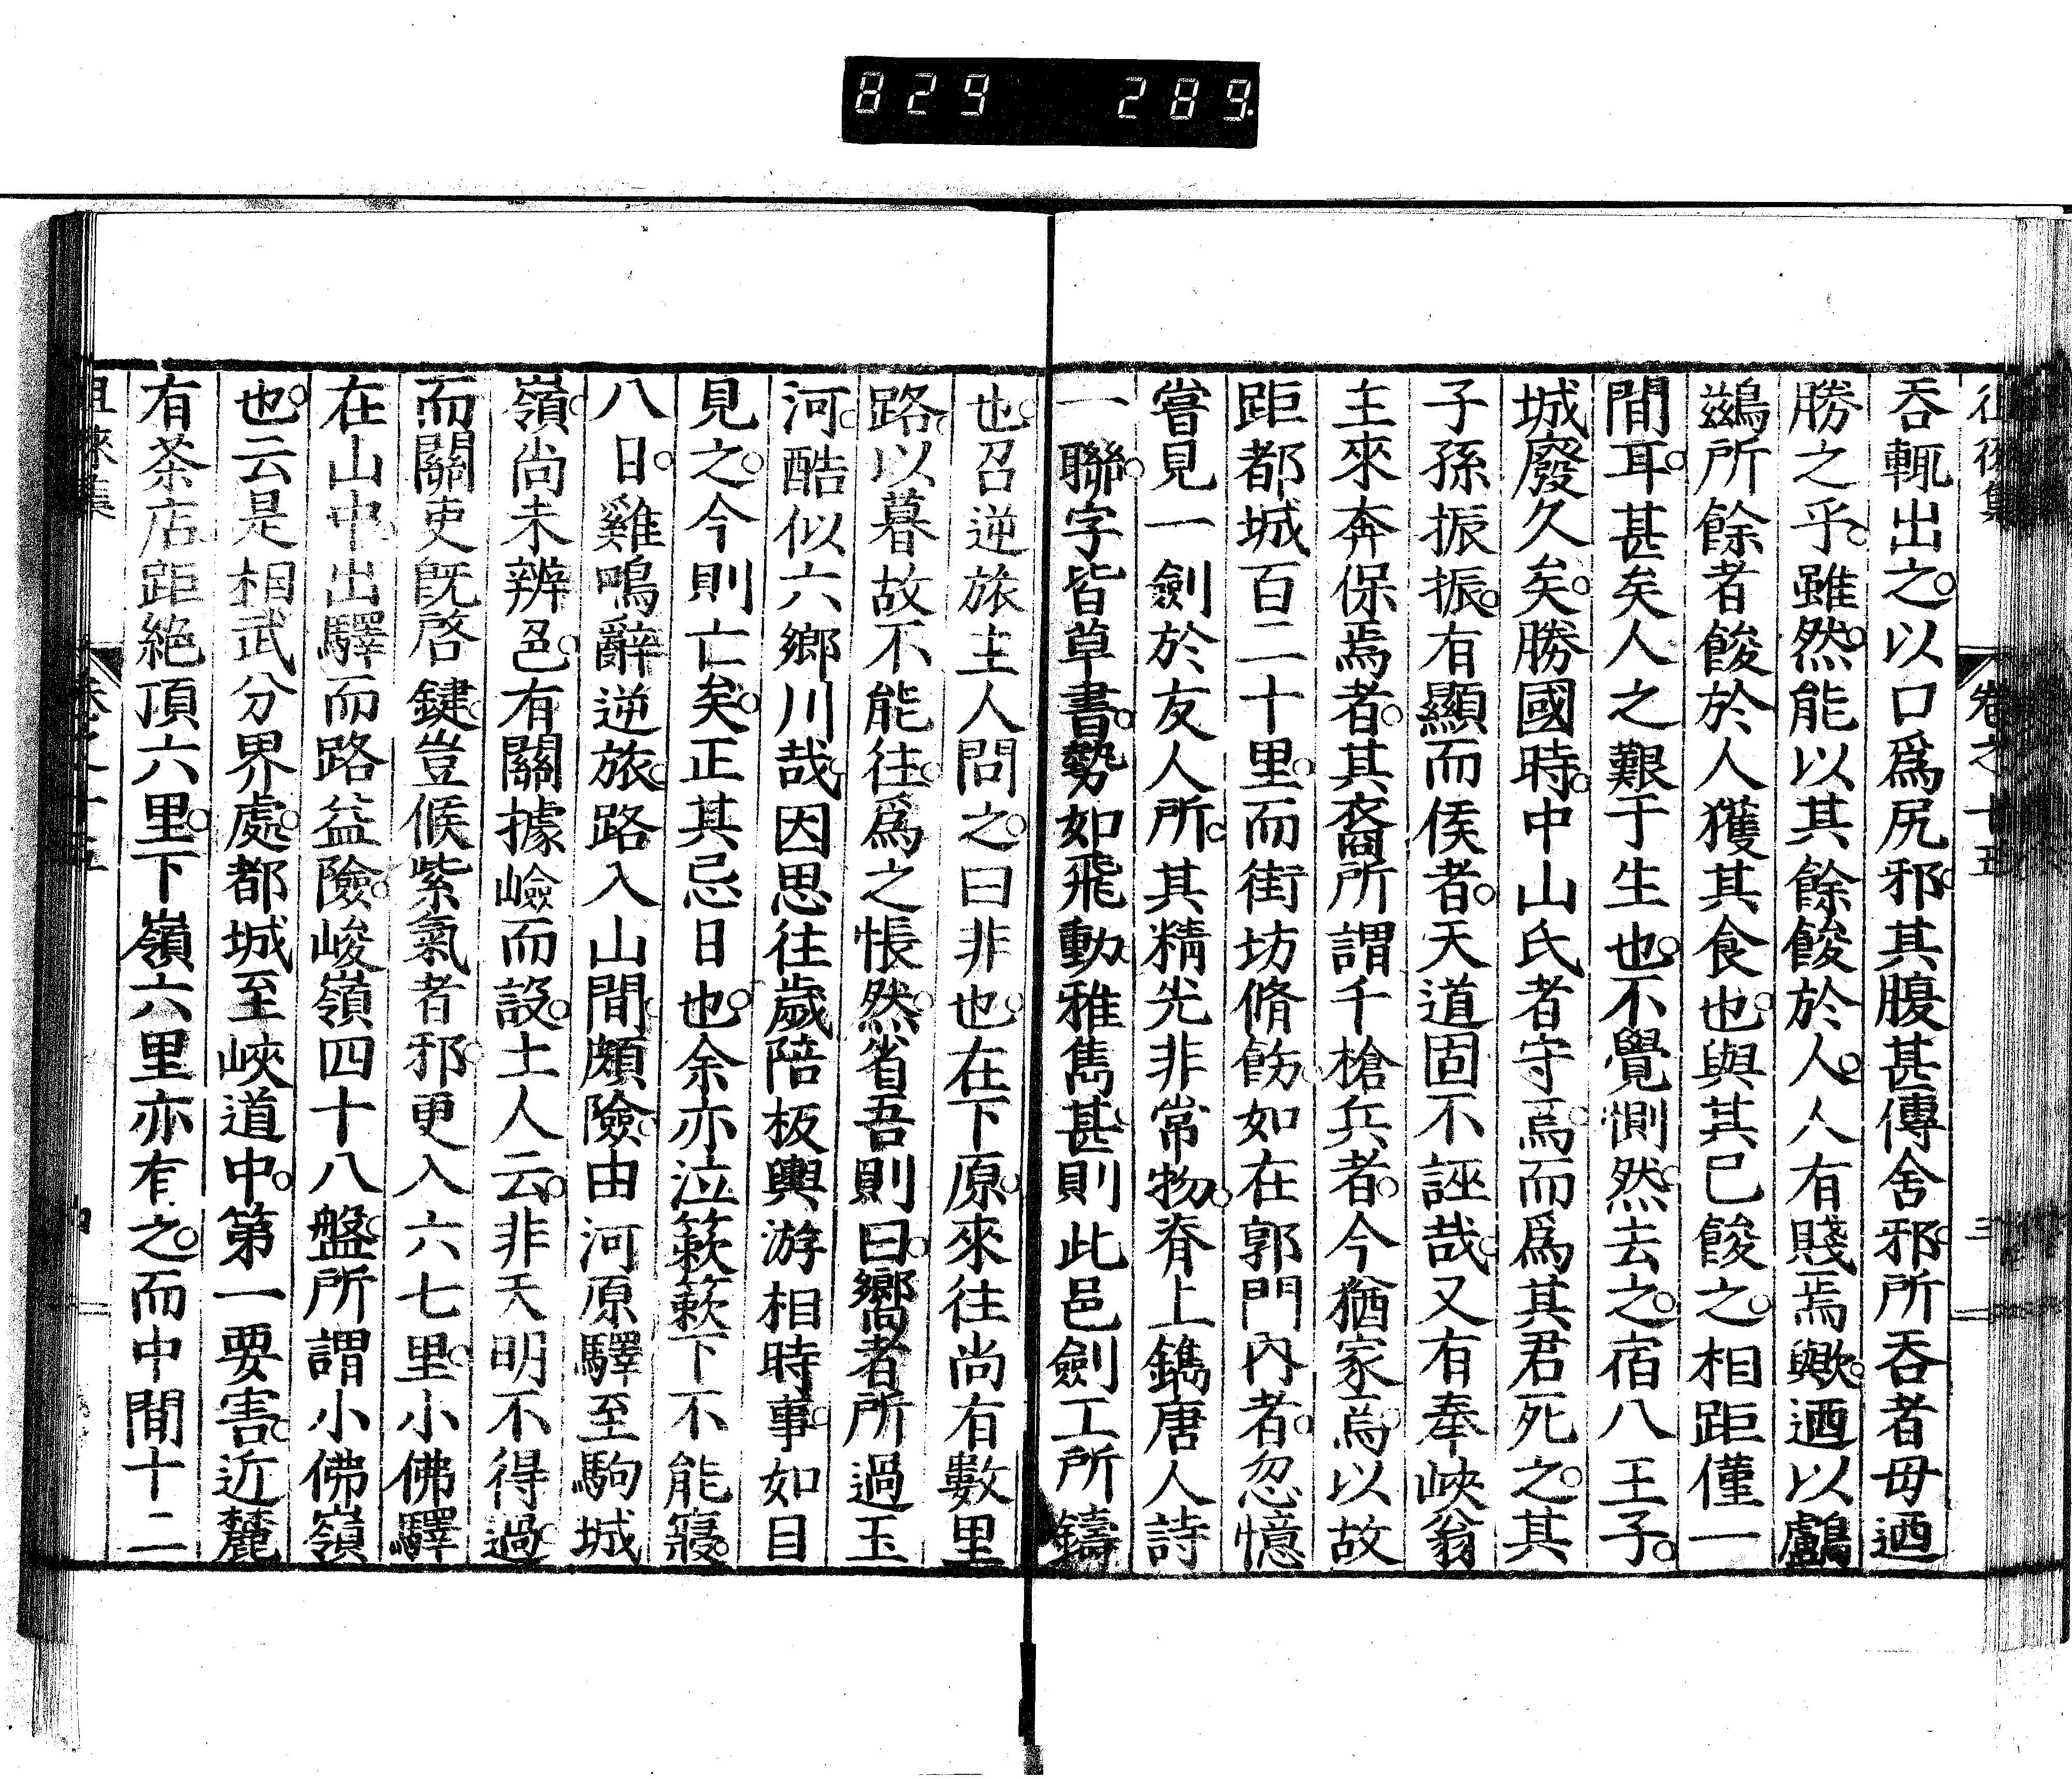 829 289
徂徠集 卷之十五 三
吞輒出之。以口爲尻邪。其腹甚傳舍邪。所吞者毋迺
勝之乎。雖然。能以其餘餕於人。人有賤焉歟。迺以鸕
鷀所餘者餕於人獲其食也。與其已餕之。相距僅一
間耳。甚矣人之艱于生也。不覺惻然去之。宿八王子。
城廢久矣。勝國時。中山氏者守焉。而爲其君死之。其
子孫振振。有顯而侯者。天道固不誣哉。又有奉峽翁
主來奔保焉者。其裔所謂千槍兵者。今猶家焉。以故
距都城百二十里。而街坊脩飭。如在郭門內者。忽憶
嘗見一劍於友人所。其精光非常物。脊上鐫唐人詩
一聯。字皆草書。勢如飛動。雅雋甚。則此邑劍工所鑄
也。召逆旅主人問之。曰非也。在下原。來往尚有數里
路。以暮故不能往。爲之悵然。省吾則曰。鄉者所過玉
河。酷似六鄉川哉。因思往歲陪板輿游相時事。如目
見之。今則亡矣。正其忌日也。余亦泣簌簌下不能寢。
八日。雞鳴辭逆旅。路入山間。頗險。由河原驛至駒城
嶺。尚未辨色。有關據嶮而設。土人云。非天明不得過。
而關吏既啓鍵。豈候紫氣者邪。更入六七里。小佛驛
在山中。出驛而路益險。峻嶺四十八盤。所謂小佛嶺
也。云是相武分界處。都城至峽道中。第一要害。近麓
有茶店。距絕頂六里。下嶺六里亦有之。而中間十二
徂徠集 卷之十五 四